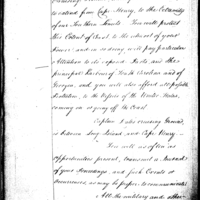 to extend from Cape Henry, to the Extremity
of our Southern Limits. You will protect
this Extent of Coast, to the utmost of your
Power: and in so doing will pay particular
Attention to the exposed Parts, and the
principal Harbours of South Carolina and of
Georgia, and you will also afford all possible
Protection, to the Vessels of the United States,
coming on or going off the Coast.
Captain is also cruising
between Long Island, and Cape Henry.
You will as often as
Opportunities present, transmit an Account
of your Proceedings, and such Events and
Occurrences, as may be proper to communicate.
All the military and other